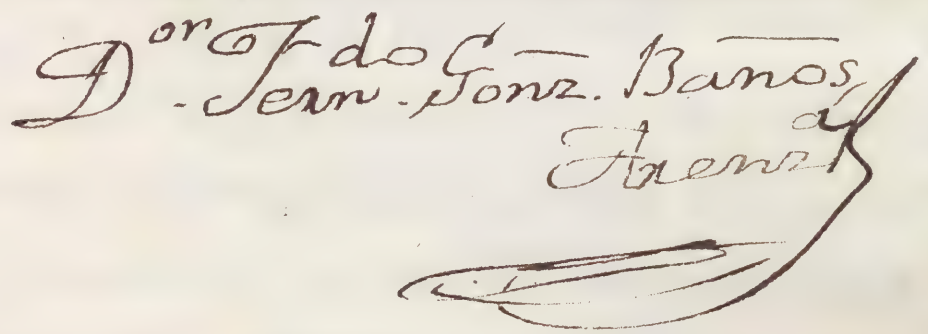 D.or Fern.do Gonz. Baños,
Arenz.a